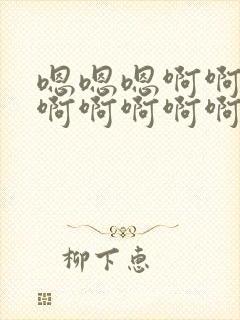 嗯嗯嗯啊啊
啊啊啊啊啊
柳下惠